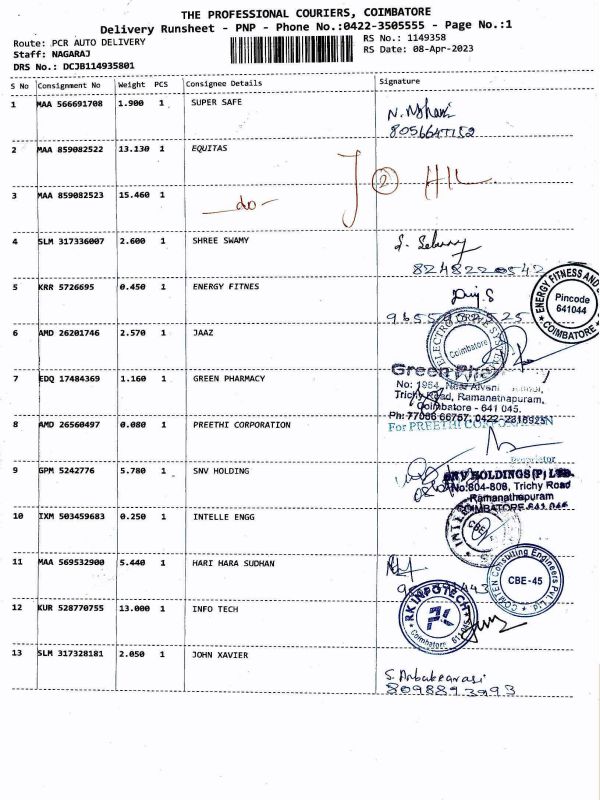 THE PROFESSIONAL COURIERS, COIMBATORE
Delivery Runsheet - PNP - Phone No.:0422-3505555 - Page No.:1
Route: PCR AUTO DELIVERY
RS No.: 1149358
Staff: NAGARAJ
RS Date: 08-Apr-2023
DRS No.: DCJB114935801
S No Consignment No Weight PCS Consignee Details Signature
1 MAA 566691708 1.900 1 SUPER SAFE
2 MAA 859082522 13.130 1 EQUITAS
3 MAA 859082523 15.460 1
-do-
2
4 SLM 317336007 2.600 1 SHREE SWAMY
8248220542
5 KRR 5726695 0.450 1 ENERGY FITNES
ENERGY FITNESS AND
Pincode
641044
COIMBATORE
6 AMD 26201746 2.570 1 JAAZ
Coimbatore
7 EDQ 17484369 1.160 1 GREEN PHARMACY
Green
No: 1954,
Trichy Road, Ramanathapuram,
Coimbatore - 641 045.
8 AMD 26560497 0.080 1 PREETHI CORPORATION
For PREETHI CORPORATION
Proprietor
9 GPM 5242776 5.780 1 SNV HOLDING
SNV HOLDINGS (P) LTD.
No:804-808, Trichy Road
Ramanathapuram
COIMBATORE-641 045
10 IXM 503459683 0.250 1 INTELLE ENGG
CBE
11 MAA 569532900 5.440 1 HARI HARA SUDHAN
Consulting Engineers Pvt. Ltd
CBE-45
12 KUR 528770755 13.000 1 INFO TECH
RK INFOTECH
Coimbatore
13 SLM 317328181 2.050 1 JOHN XAVIER
8098893993